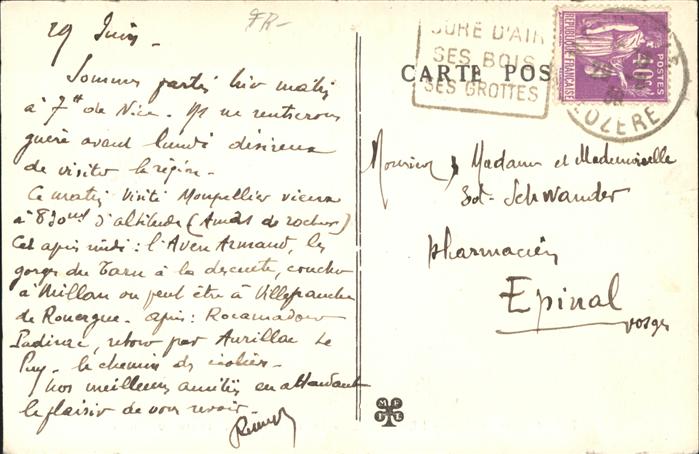 29 Juin.
FR-
Sommes partis hier matin
à 7h de Nice. Ns ne rentrerons
guère avant lundi désireux
de visiter la région.
Ce matin visité Montpellier vieux
à 830m d'altitude (Amas de rochers)
Cet après midi : l'Aven Armand, les
gorges du Tarn à la descente, coucher
à Millau ou peut être à Villefranche
de Rouergue. après : Rocamadour
Padirac, retour par Aurillac Le
Puy. le chemin des écoliers.
Nos meilleures amitiés en attendant
le plaisir de vous revoir.
CURE D'AIR
SES BOIS
SES GROTTES
CARTE POS
REPUBLIQUE FRANÇAISE
POSTES
40c
LOZERE
Monsieur, Madame et Mademoiselle
Schwander
pharmacien
Epinal
Vosges